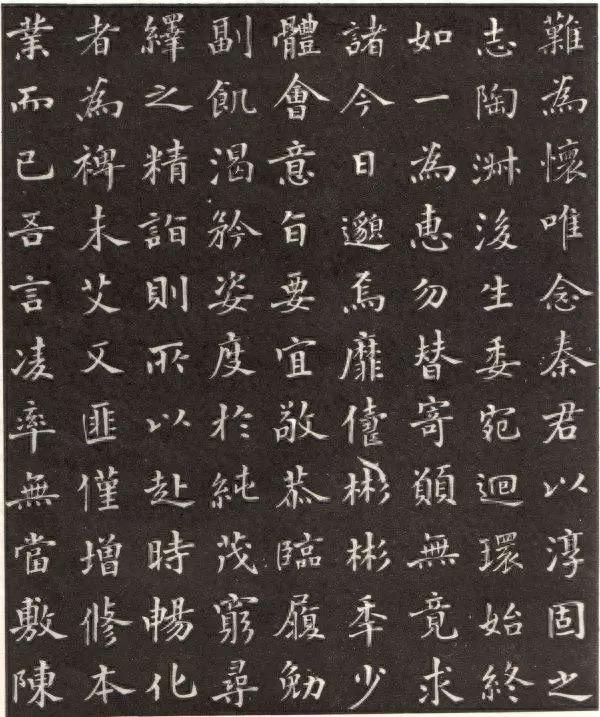 難為懷唯念秦君以淳固之
志陶淑後生委宛迴環始終
如一為惠勿替寄願無竟求
諸今日邈焉靡儔彬彬季少
體會意旨要宜敬恭臨履勉
副飢渴矜姿度於純茂窮尋
繹之精詣則所以赴時暢化
者為裨未艾又匪僅增修本
業而已吾言凌率無當敷陳